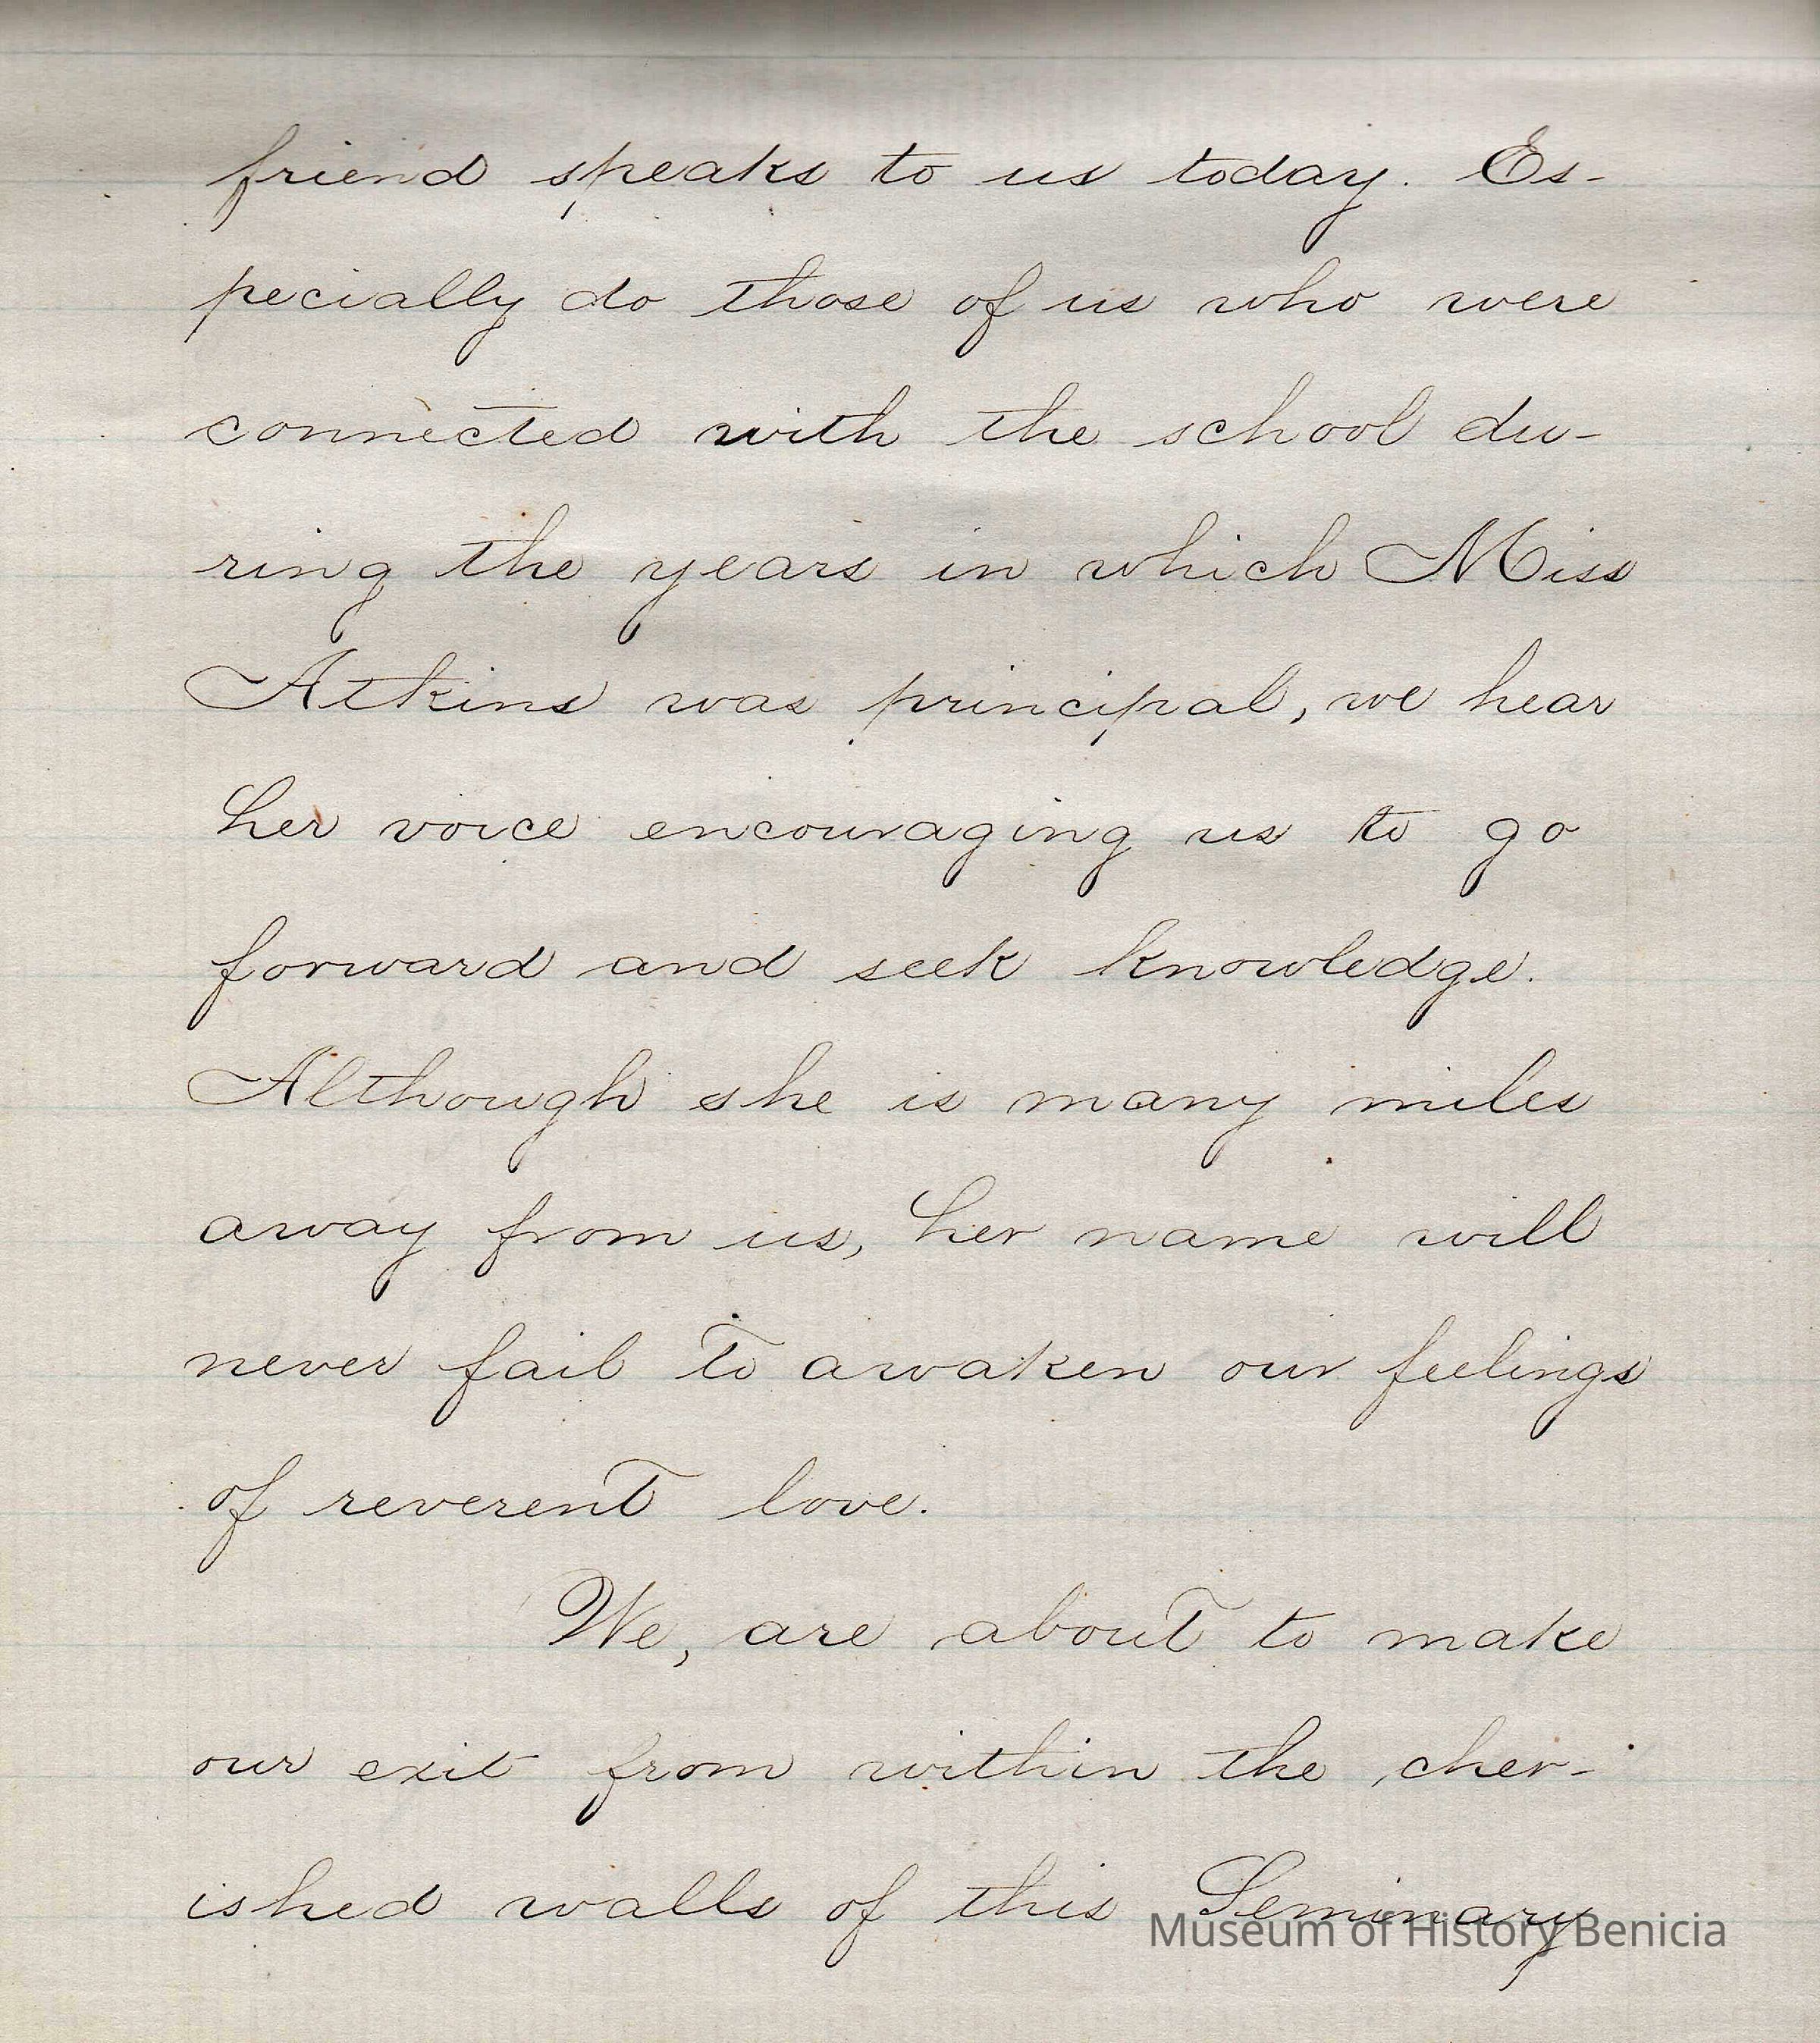 friend speaks to us today. Es-
pecially do those of us who were
connected with the school du-
ring the years in which Miss
Atkins was principal, we hear
her voice encouraging us to go
forward and seek knowledge.
Although she is many miles
away from us, her name will
never fail to awaken our feelings
of reverent love.
We, are about to make
our exit from within the cher-
ished walls of this Seminary
Museum of History Benicia